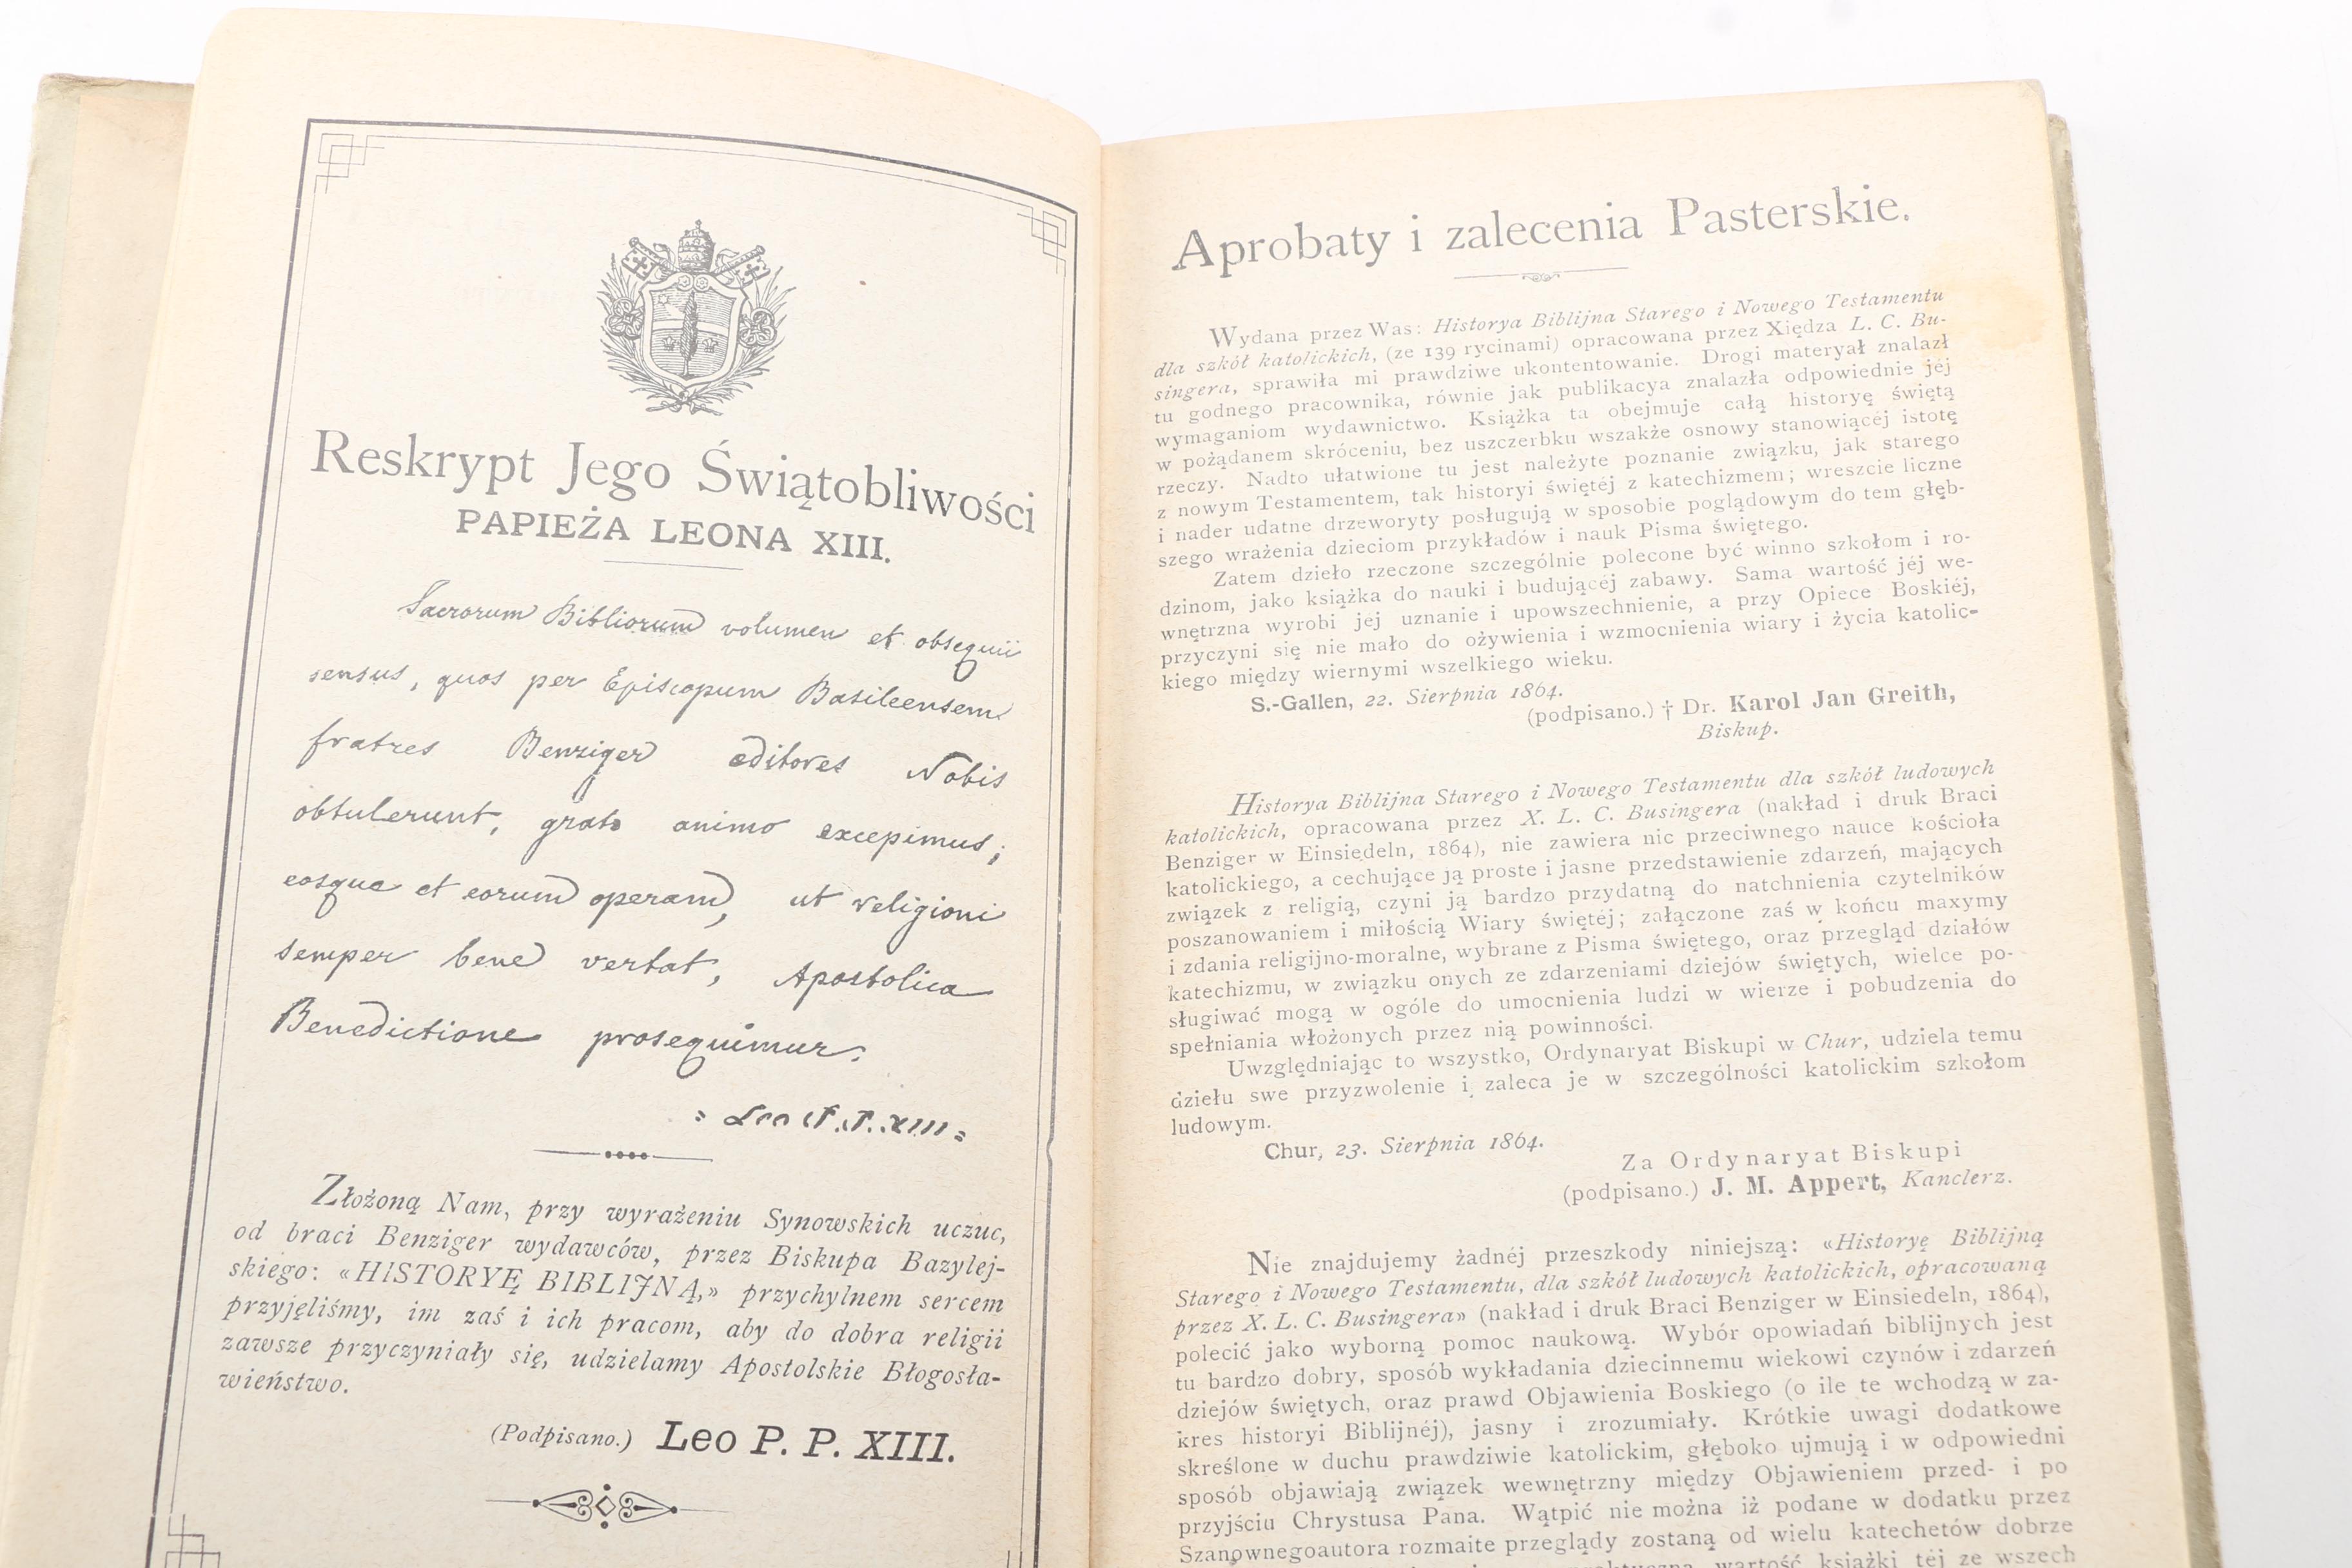 Reskrypt Jego Świątobliwości
PAPIEŻA LEONA XIII.
Sacrorum Bibliorum volumen et obsequii
sensus, quos per Episcopum Basileensem
fratres Benziger editores Nobis
obtulerunt, grato animo excepimus;
eosque et eorum operam, ut religioni
semper bene vertat, Apostolica
Benedictione prosequimur.
= Leo P.P. XIII =
Złożoną Nam, przy wyrażeniu Synowskich uczuc,
od braci Benziger wydawców, przez Biskupa Bazylej-
skiego: «HISTORYĘ BIBLIJNĄ,» przychylnem sercem
przyjęliśmy, im zaś i ich pracom, aby do dobra religii
zawsze przyczyniały się, udzielamy Apostolskie Błogosła-
wieństwo.
(Podpisano.) Leo P. P. XIII.
Aprobaty i zalecenia Pasterskie.
Wydana przez Was: Historya Biblijna Starego i Nowego Testamentu
dla szkół katolickich, (ze 139 rycinami) opracowana przez Xiędza L. C. Bu-
singera, sprawiła mi prawdziwe ukontentowanie. Drogi materyał znalazł
tu godnego pracownika, równie jak publikacya znalazła odpowiednie jéj
wymaganiom wydawnictwo. Książka ta obejmuje całą historyę świętą
w pożądanem skróceniu, bez uszczerbku wszakże osnowy stanowiącéj istotę
rzeczy. Nadto ułatwione tu jest należyte poznanie związku, jak starego
z nowym Testamentem, tak historyi świętéj z katechizmem; wreszcie liczne
i nader udatne drzeworyty posługują w sposobie poglądowym do tem głęb-
szego wrażenia dzieciom przykładów i nauk Pisma świętego.
Zatem dzieło rzeczone szczególnie polecone być winno szkołom i ro-
dzinom, jako książka do nauki i budującéj zabawy. Sama wartość jéj we-
wnętrzna wyrobi jéj uznanie i upowszechnienie, a przy Opiece Boskiéj,
przyczyni się nie mało do ożywienia i wzmocnienia wiary i życia katolic-
kiego między wiernymi wszelkiego wieku.
S.-Gallen, 22. Sierpnia 1864.
(podpisano.) † Dr. Karol Jan Greith,
Biskup.
Historya Biblijna Starego i Nowego Testamentu dla szkół ludowych
katolickich, opracowana przez X. L. C. Busingera (nakład i druk Braci
Benziger w Einsiedeln, 1864), nie zawiera nic przeciwnego nauce kościoła
katolickiego, a cechujące ją proste i jasne przedstawienie zdarzeń, mających
związek z religią, czyni ją bardzo przydatną do natchnienia czytelników
poszanowaniem i miłością Wiary świętéj; załączone zaś w końcu maxymy
i zdania religijno-moralne, wybrane z Pisma świętego, oraz przegląd działów
katechizmu, w związku onych ze zdarzeniami dziejów świętych, wielce po-
sługiwać mogą w ogóle do umocnienia ludzi w wierze i pobudzenia do
spełniania włożonych przez nią powinności.
Uwzględniając to wszystko, Ordynaryat Biskupi w Chur, udziela temu
dziełu swe przyzwolenie i zaleca je w szczególności katolickim szkołom
ludowym.
Chur, 23. Sierpnia 1864.
Za Ordynaryat Biskupi
(podpisano.) J. M. Appert, Kanclerz.
Nie znajdujemy żadnéj przeszkody niniejszą: «Historyę Biblijną
Starego i Nowego Testamentu, dla szkół ludowych katolickich, opracowaną
przez X. L. C. Busingera» (nakład i druk Braci Benziger w Einsiedeln, 1864),
polecić jako wyborną pomoc naukową. Wybór opowiadań biblijnych jest
tu bardzo dobry, sposób wykładania dziecinnemu wiekowi czynów i zdarzeń
dziejów świętych, oraz prawd Objawienia Boskiego (o ile te wchodzą w za-
kres historyi Biblijnéj), jasny i zrozumiały. Krótkie uwagi dodatkowe
skreślone w duchu prawdziwie katolickim, głęboko ujmują i w odpowiedni
sposób objawiają związek wewnętrzny między Objawieniem przed- i po
przyjściu Chrystusa Pana. Wątpić nie można iż podane w dodatku przez
Szanownegoautora rozmaite przeglądy zostaną od wielu katechetów dobrze
wartość książki téj ze wszech